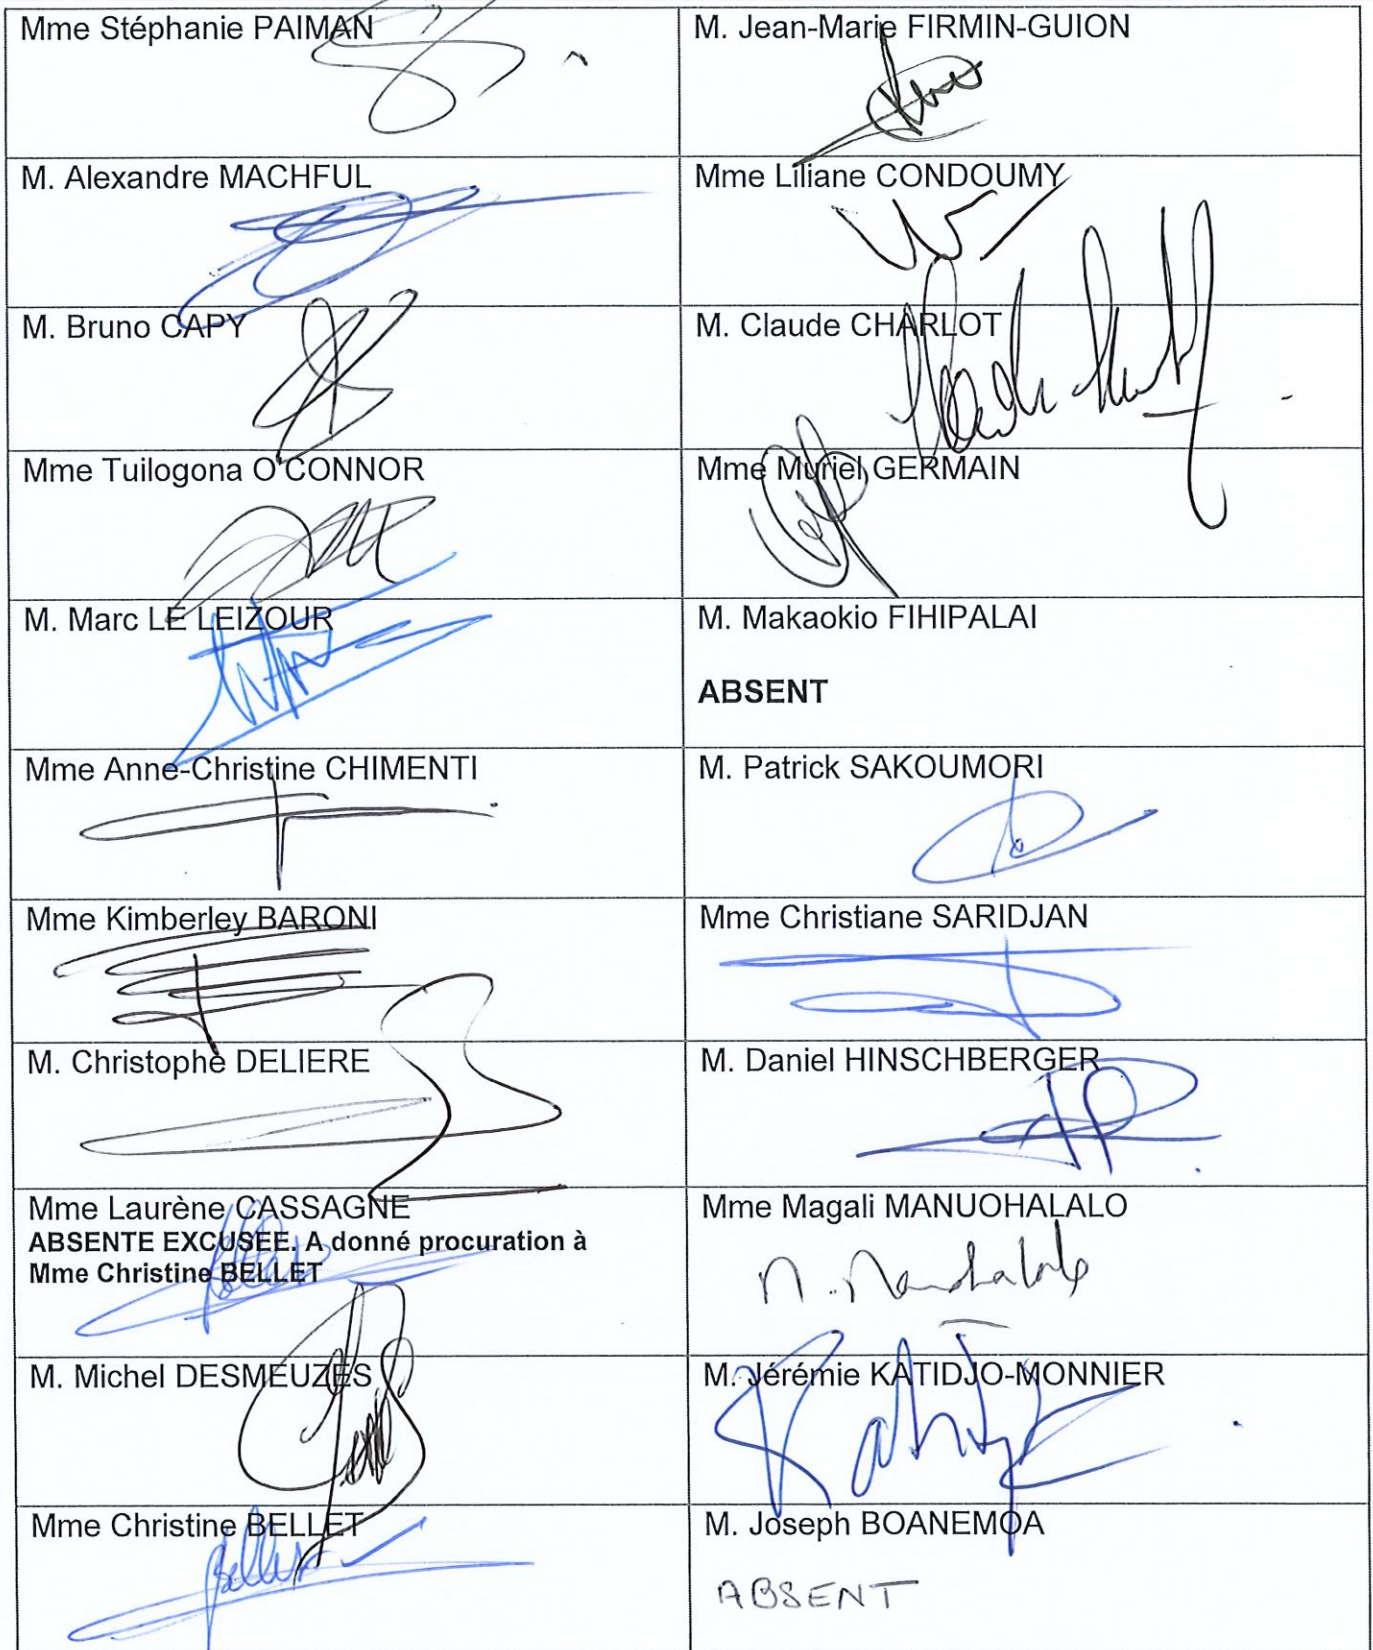 Mme Stéphanie PAIMAN
M. Jean-Marie FIRMIN-GUION
M. Alexandre MACHFUL
Mme Liliane CONDOUMY
M. Bruno CAPY
M. Claude CHARLOT
Mme Tuilogona O'CONNOR
Mme Muriel GERMAIN
M. Marc LE LEIZOUR
M. Makaokio FIHIPALAI
ABSENT
Mme Anne-Christine CHIMENTI
M. Patrick SAKOUMORI
Mme Kimberley BARONI
Mme Christiane SARIDJAN
M. Christophe DELIERE
M. Daniel HINSCHBERGER
Mme Laurène CASSAGNE
ABSENTE EXCUSEE. A donné procuration à
Mme Christine BELLET
Mme Magali MANUOHALALO
M. Michel DESMEUZES
M. Jérémie KATIDJO-MONNIER
Mme Christine BELLET
Bellet
M. Joseph BOANEMOA
ABSENT